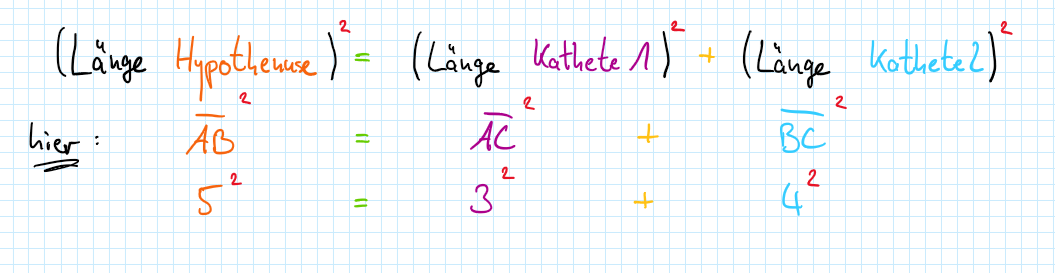 (Länge Hypothenuse)² = (Länge Kathete 1)² + (Länge Kathete 2)²
hier: A̅B̅² = A̅C̅² + B̅C̅²
5² = 3² + 4²